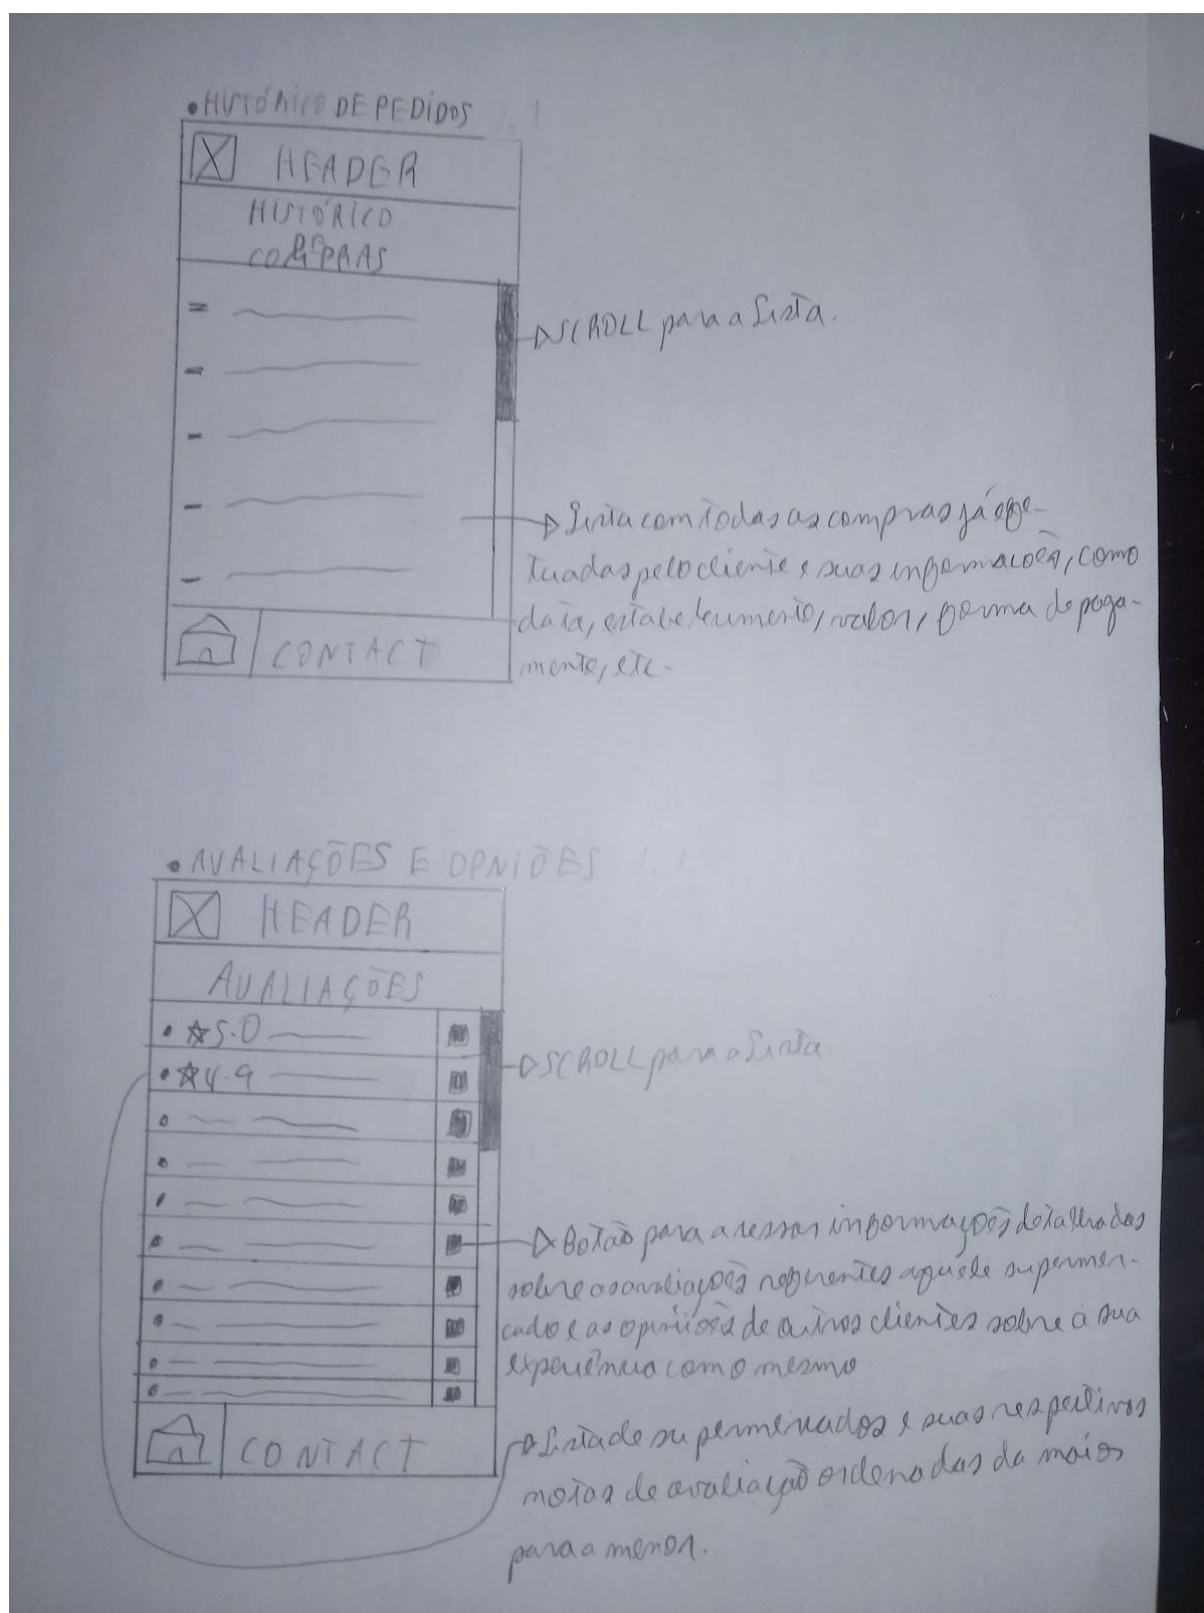 • HISTÓRICO DE PEDIDOS
HEADER
HISTÓRICO
DE
COMPRAS
SCROLL para a Lista.
Lista com todas as compras já efe-
tuadas pelo cliente e suas informações, como
data, estabelecimento, valor, forma de paga-
mento, etc.
CONTACT
• AVALIAÇÕES E OPNIÕES
HEADER
AVALIAÇÕES
• ☆5.0
• ☆4.9
SCROLL para a Lista
Botão para acessar informações detalhadas
sobre as avaliações referentes aquele supermer-
cado e as opiniões de outros clientes sobre a sua
experiência com o mesmo
Lista de supermercados e suas respectivas
notas de avaliação ordenadas da maior
para a menor.
CONTACT